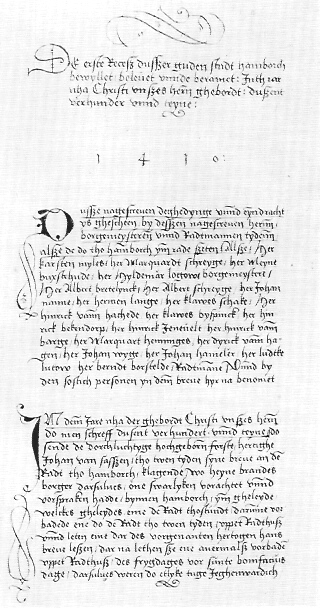 De erste Recesz dusser guden stadt hamborch
bewyllet beleuet vnnde beramet: Inth jar
nha Christi vnszes hern ghebordt: duszent
verhunder vnnd teyne:
1 4 1 0:
Dusse nagescreuen deghedynge vnnd eyndracht
ys ghescheen by dessen nagescreuen hern:
borgemeysteren vnnd Radtmannen tydenn
alsze de do tho hamborch ynn rade szeten: Alsze: her
karsten myles, her Marquardt schreyge, her Meyne
buxstehude, her Hyldemar logowe borgemeystere,
Her Albert bretelynck, Her Albert schreyge, her Johan
nanne, her hermen lange, her klawes schake, Her
hinrick vann hachede, her klawes bysprinck, her hin
rick bekendorp, her hinrick Jeneuelt, her hinrick vam
barge, her Marquart henninges, her dyrck vam ha
gen, her Johan woyge, her Johan hameler, her ludeke
lutow, her berndt borstelde, Radtmanne Vnnd by
den sostich personen yn dem breue hyr na benomet
IN dem Jare nha der ghebordt Christi vnszes hern
do men schreff dusent verhundert vnnd teyne do
sende de dorchluchtyge hochgeborn forste, hertighe
Johan van sassen, tho twen tyden syne breue an den
Radt tho hamborch, klagende wo heyne brandes
borger darsulues, one swarlyken vorachtet vnnd
vorspraken hadde, bynnen hamborch, ynn gheleyde
welckes gheleydes eme de Radt thostundt, darumme vor
badede ene do de Radt tho twen tyden, vppet Radthusz
vnnd leten eme dar des vorgenanten hertogen hans
breue leszen, dar na lethen sze ene auermalsz vorbade
vppet Radthusz, des frygdages vor sunte bonifacius
dage, darsulues weren do etlyke tuge Jeghenwardich